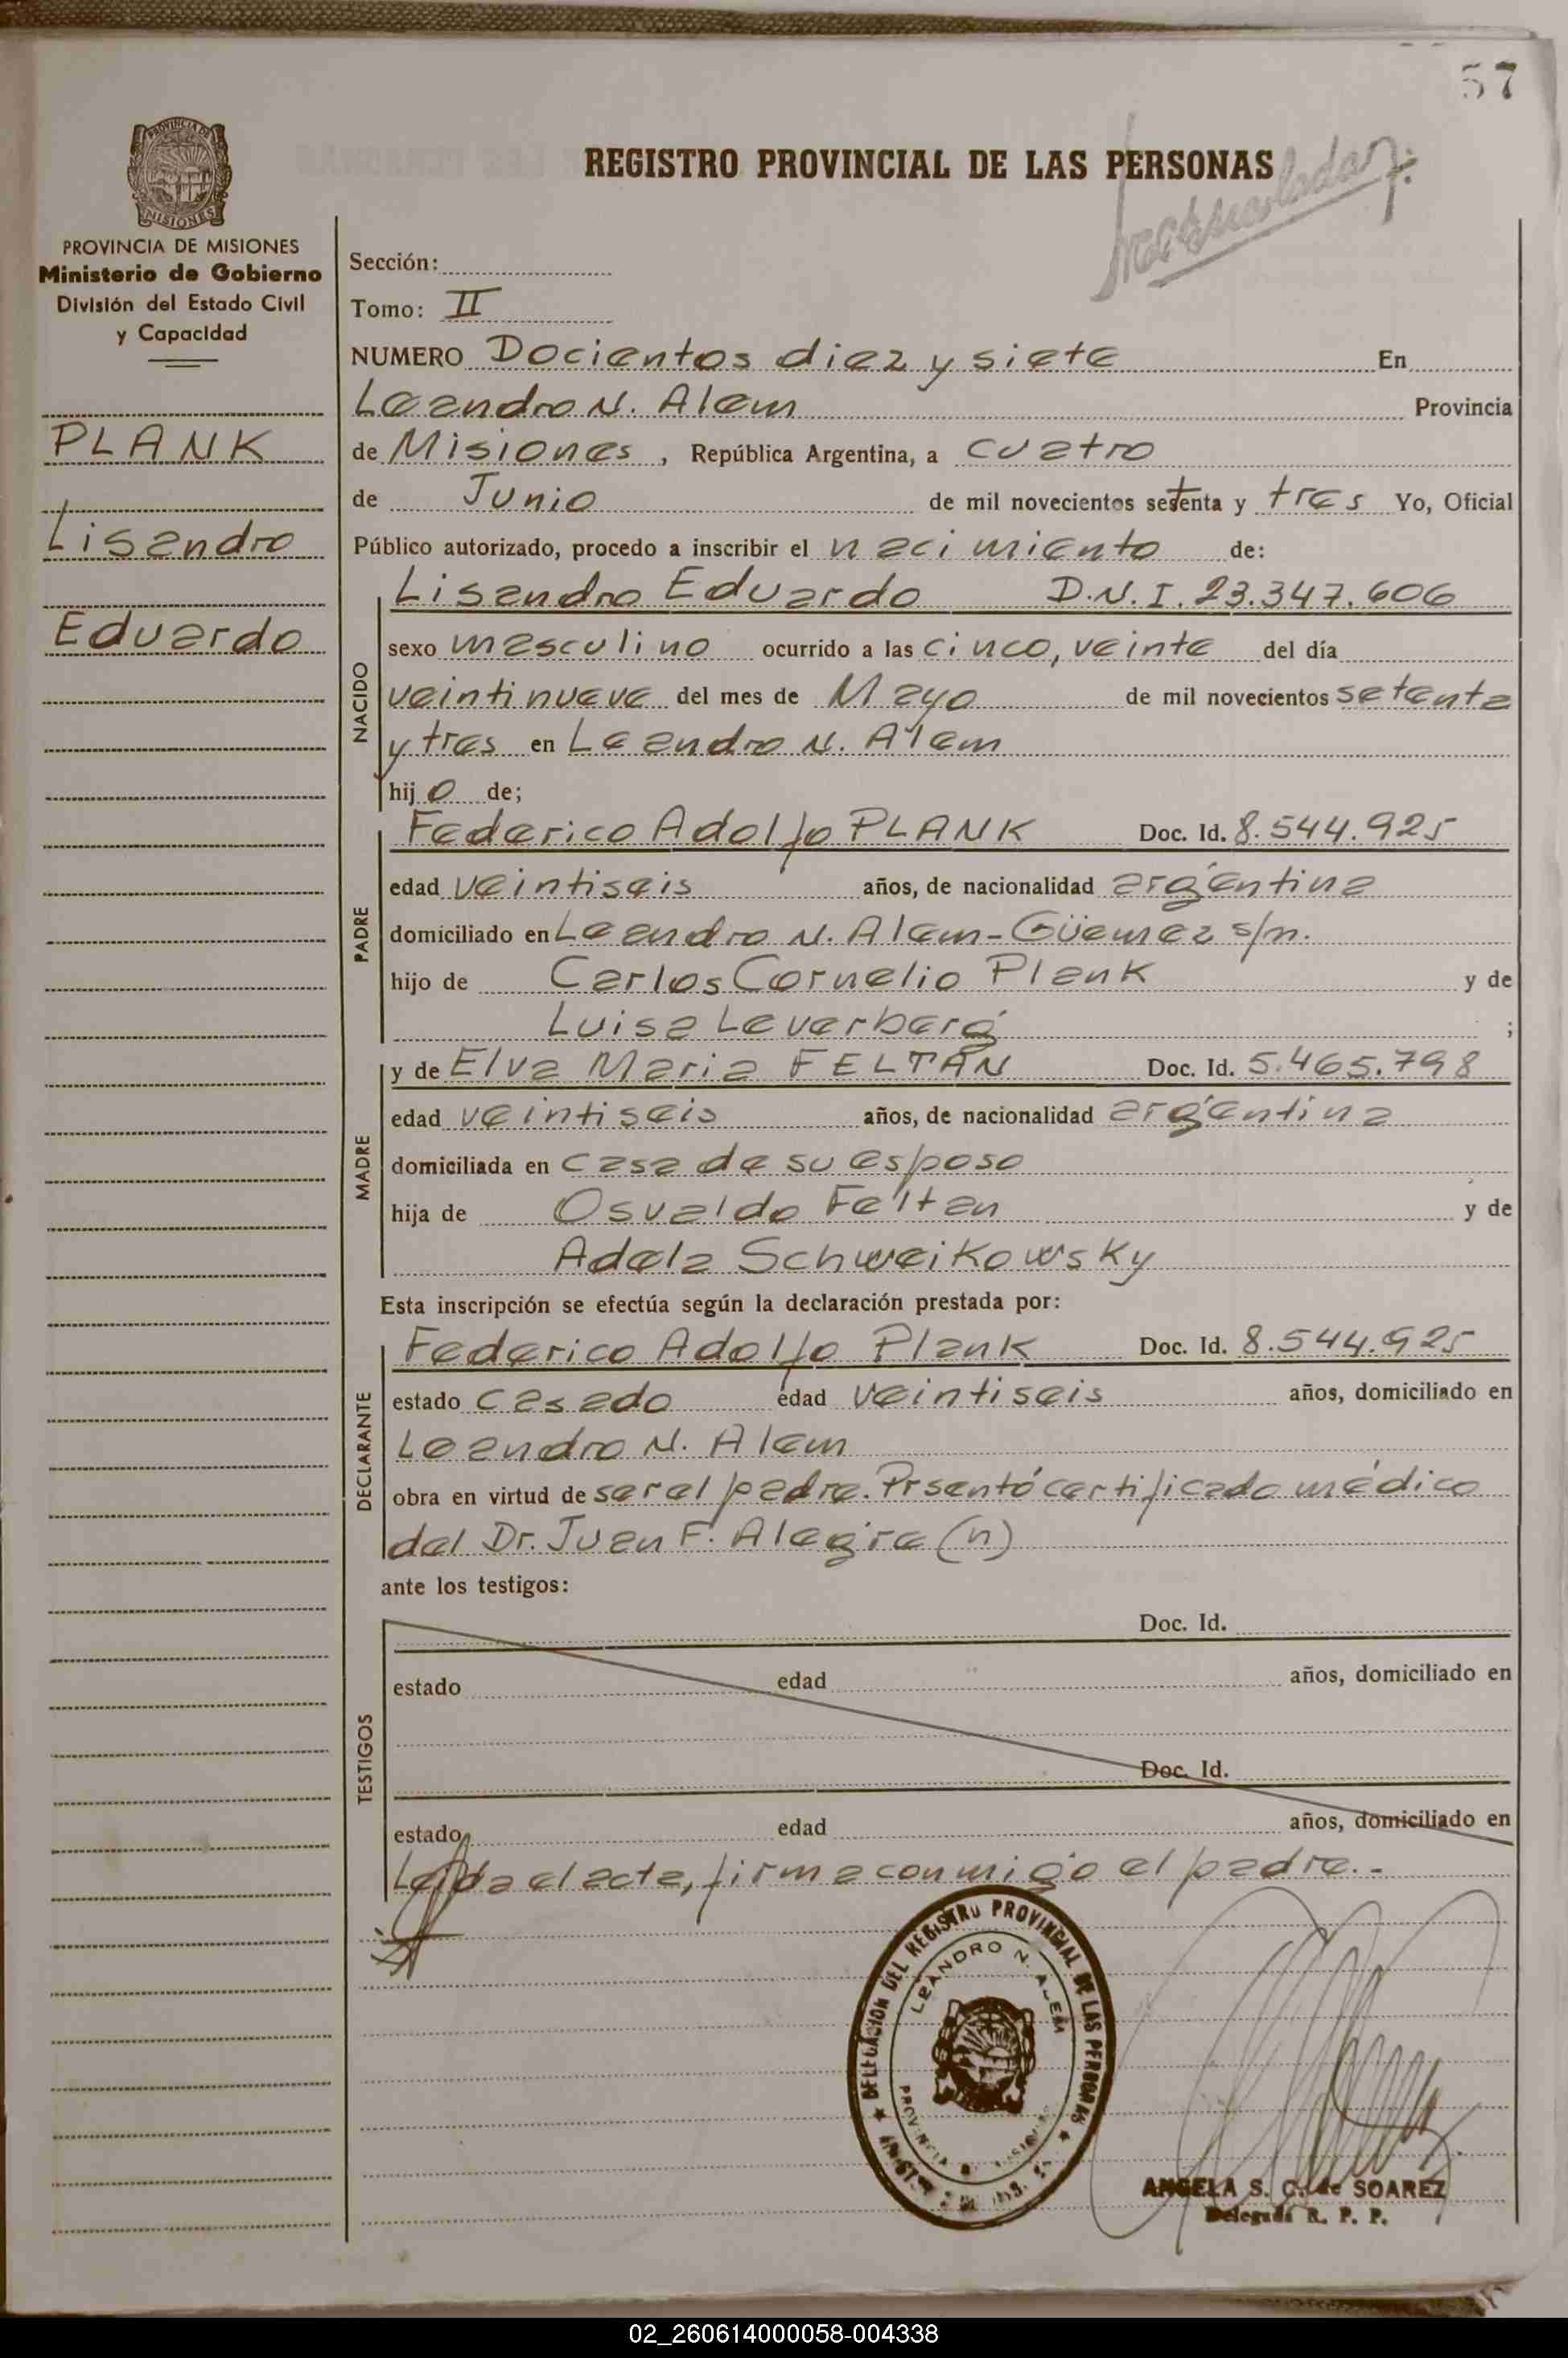 57
REGISTRO PROVINCIAL DE LAS PERSONAS
PROVINCIA DE MISIONES
Ministerio de Gobierno
División del Estado Civil
y Capacidad
PLANK
Lisandro
Eduardo
Sección:
Tomo: II
NUMERO Docientos diez y siete En
Leandro N. Alem Provincia
de Misiones, República Argentina, a cuatro
de Junio de mil novecientos setenta y tres Yo, Oficial
Público autorizado, procedo a inscribir el nacimiento de:
NACIDO
Lisandro Eduardo D.N.I. 23.347.606
sexo masculino ocurrido a las cinco, veinte del día
veintinueve del mes de Mayo de mil novecientos setenta
y tres en Leandro N. Alem
hijo de;
PADRE
Federico Adolfo PLANK Doc. Id. 8.544.925
edad veintiseis años, de nacionalidad argentina
domiciliado en Leandro N. Alem-Güemez s/n.
hijo de Carlos Cornelio Plank y de
Luisa Leverberg ;
MADRE
y de Elva Maria FELTAN Doc. Id. 5.465.798
edad veintiseis años, de nacionalidad argentina
domiciliada en casa de su esposo
hija de Osvaldo Feltan y de
Adela Schweikowsky
Esta inscripción se efectúa según la declaración prestada por:
DECLARANTE
Federico Adolfo Plank Doc. Id. 8.544.925
estado casado edad veintiseis años, domiciliado en
Leandro N. Alem
obra en virtud de ser el padre. Prsentó certificado médico
del Dr. Juan F. Alegre (n)
ante los testigos:
TESTIGOS
Doc. Id.
estado edad años, domiciliado en
Doc. Id.
estado edad años, domiciliado en
Leída el acta, firma conmigo el padre.-
DELEGACION DEL REGISTRO PROVINCIAL DE LAS PERSONAS
LEANDRO N. ALEM
PROVINCIA MISIONES
ANGELA S. C. de SOAREZ
Delegada R. P. P.
02_260614000058-004338